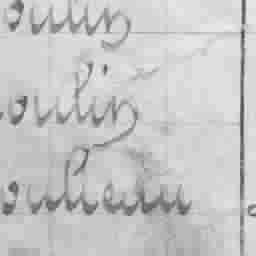 oulin
oulin
oulieau